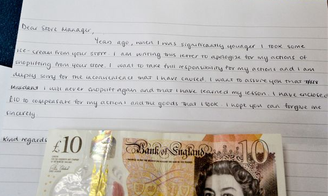 Dear Store Manager,
Years ago, when I was significantly younger I took some
ice-cream from your store. I am writing this letter to apologise for my actions of
shoplifting from your store. I want to take full responsibility for my actions and I am
deeply sorry for the inconvenience that I have caused. I want to assure you that
I will never shoplift again and that I have learned my lesson. I have enclosed
£10 to compensate for my actions and the goods that I took. I hope you can forgive me
sincerely.
Kind regards
£10
Bank of England
10